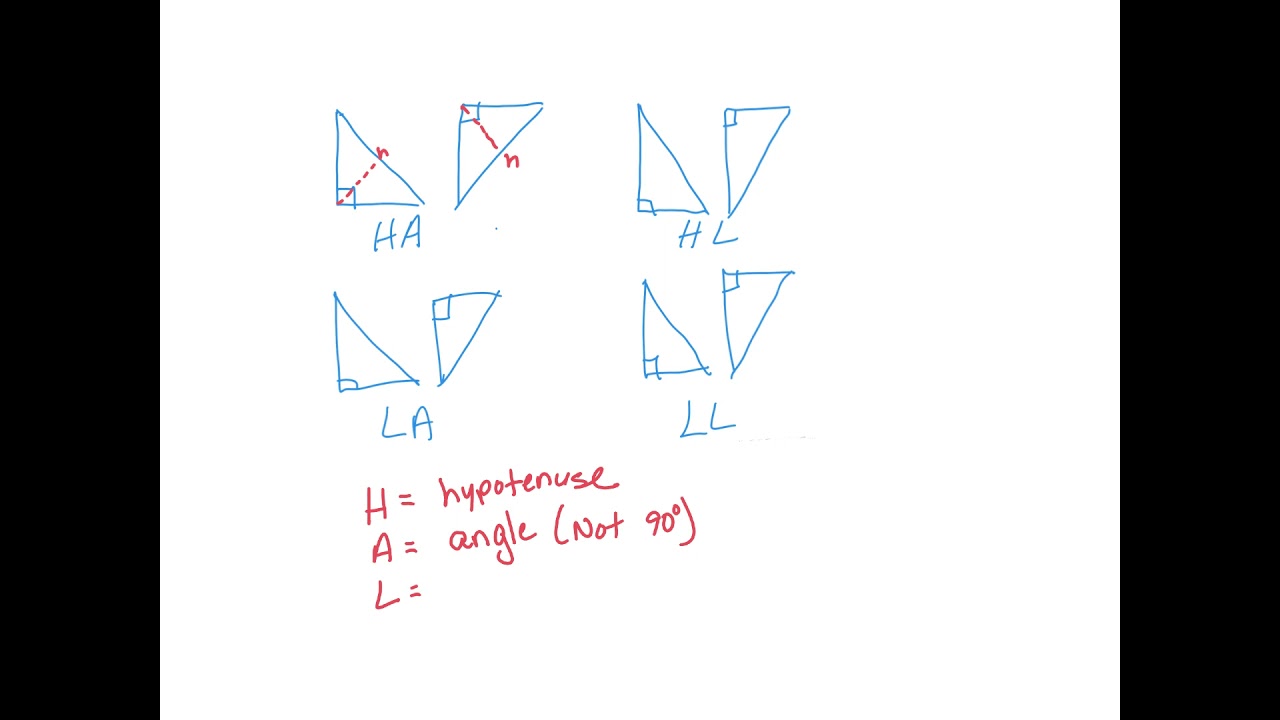 h h
HA HL
LA LL
H = hypotenuse
A = angle (Not 90°)
L =